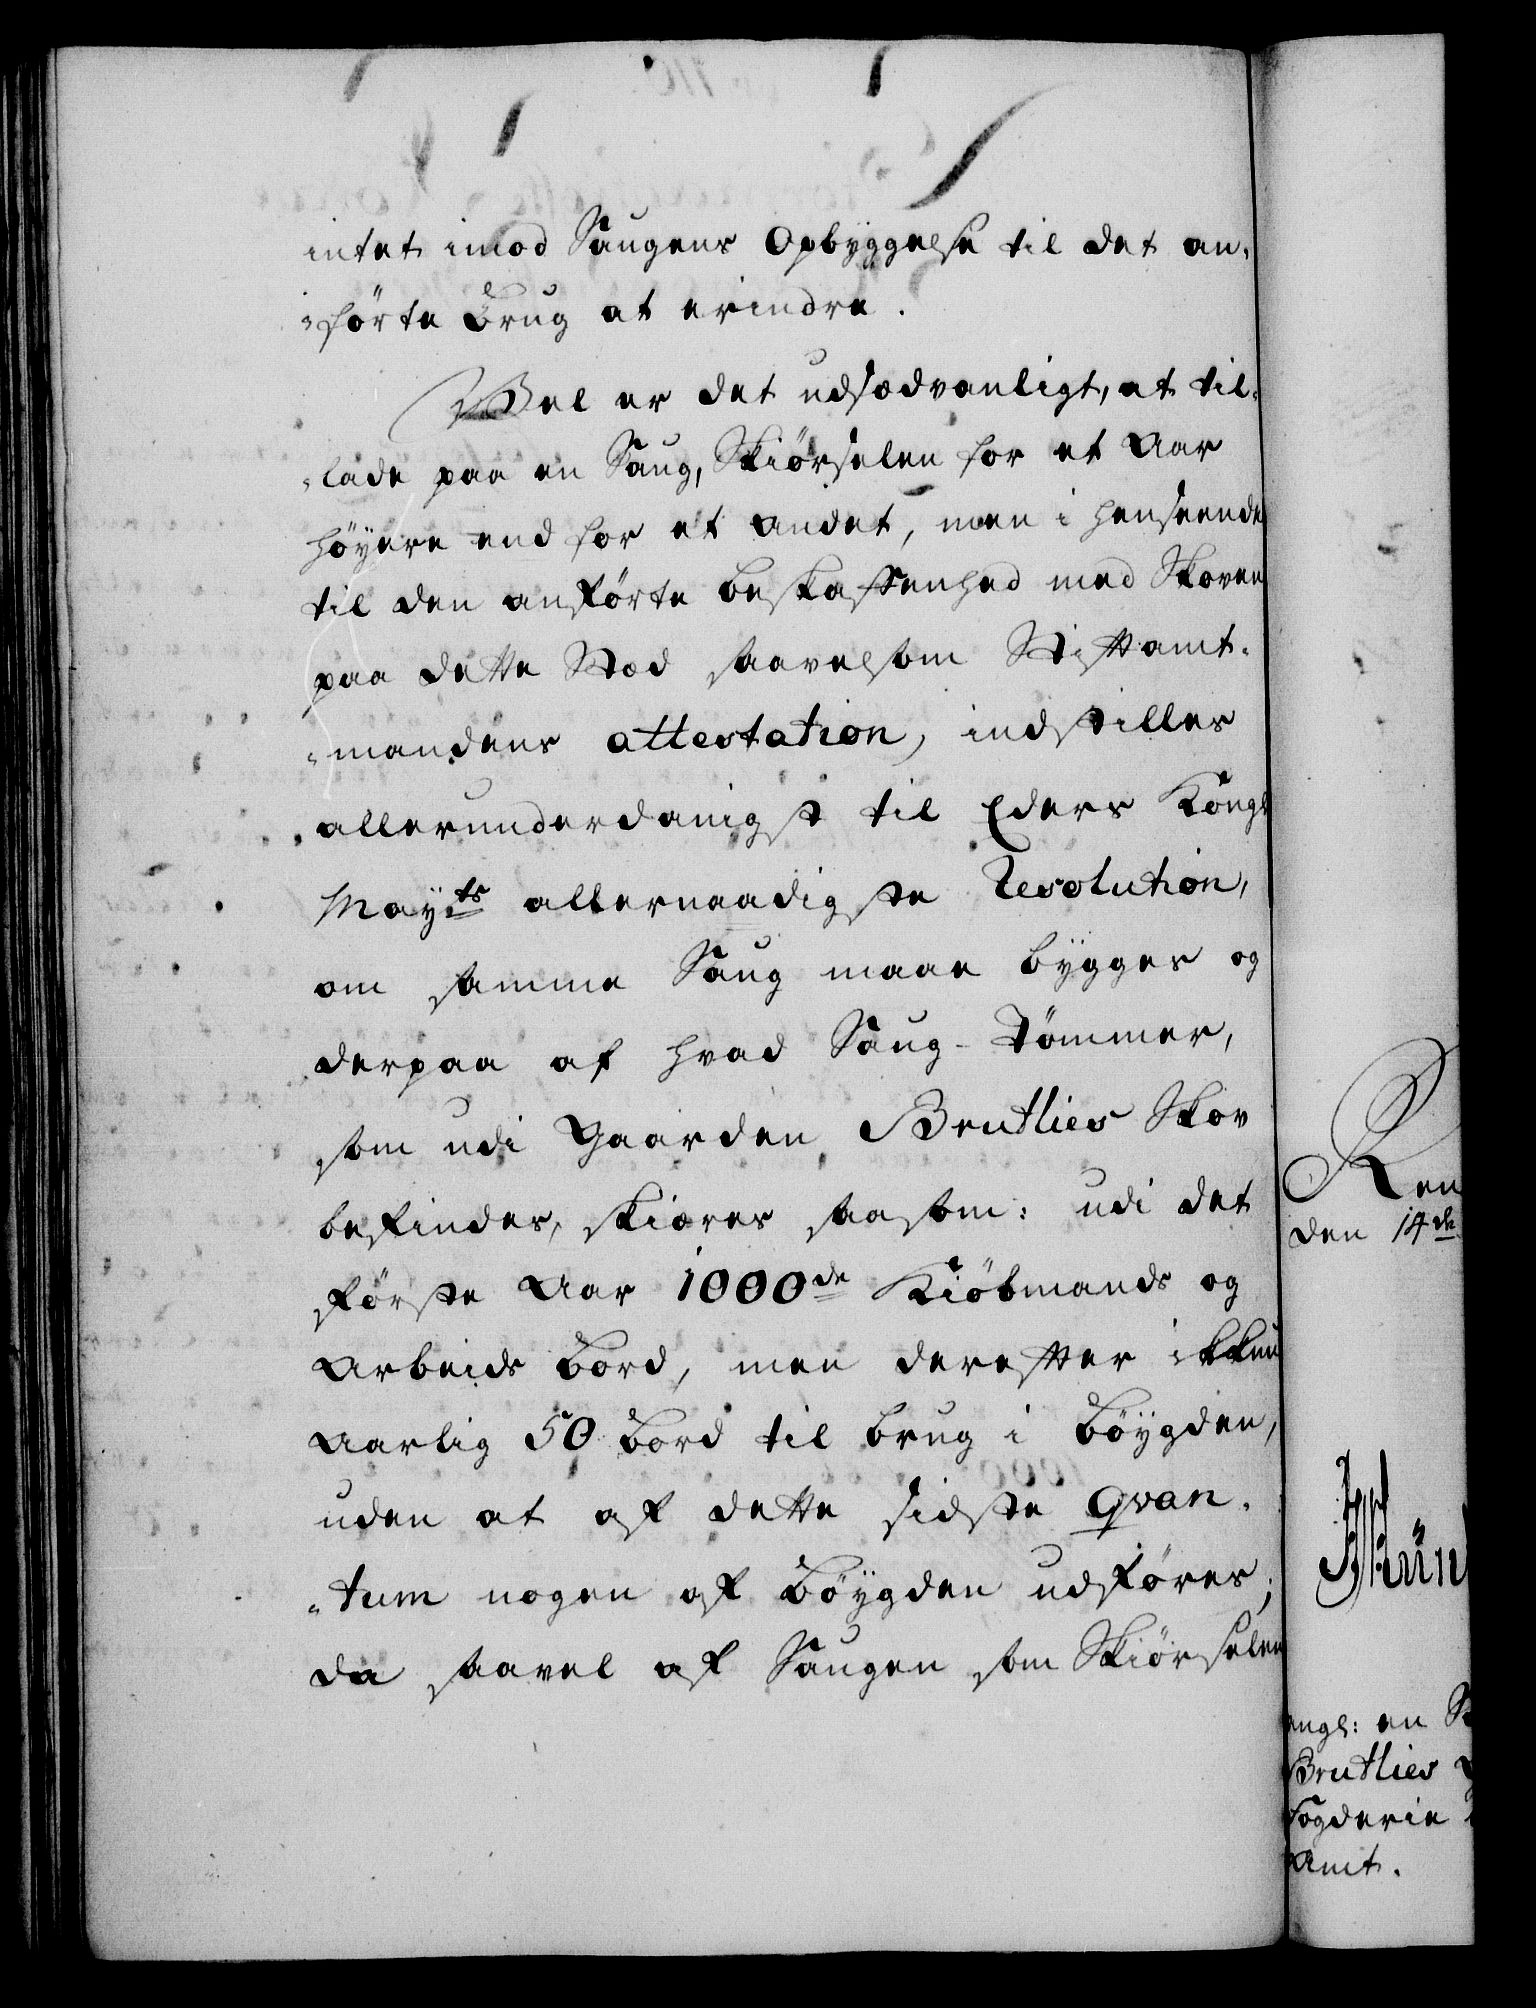 intet imod Saugens Opbyggelse til det an-
-førte Brug at erindre.
Vel er det usædvanligt, at til-
-lade paa en Saug, Skiørselen for et Aar
høyere end for et andet, men i henseende
til den anførte beskaffenhed med Skoven
paa dette Stæd saavelsom Stiftamt-
-mandens attestation, indstilles
allerunderdanigst til Eders Kongl
Mayts allernaadigste Resolution,
om samme Saug maae bygges og
derpaa af hvad Saug-Tømmer,
som udi Gaarden Brutlies Skov
befindes, skiæres saasom: udi det
første Aar 1000de Kiöbmands og
Arbeids Bord, men derefter ikkun
aarlig 50 Bord til brug i Böygden,
uden at af dette sidste Qvan-
-tum nogen af Böygden udføres;
da saavel af Saugen som Skiørselen
Ren
den 14de
engl: en
Brutlies
Fogderie
Amt.